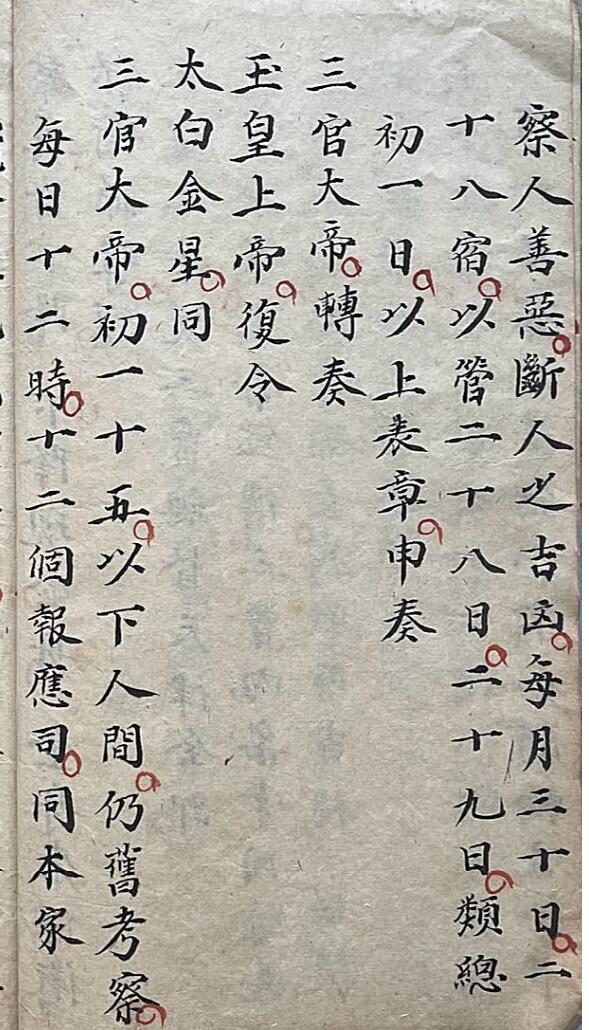 察人善惡。斷人之吉凶。每月三十日。二
十八宿。以管二十八日。二十九日。類總
初一日。以上表章。申奏
三官大帝。轉奏
玉皇上帝。復令
太白金星。同
三官大帝。初一十五。以下人間。仍舊考察。
每日十二時。十二個報應司。同本家